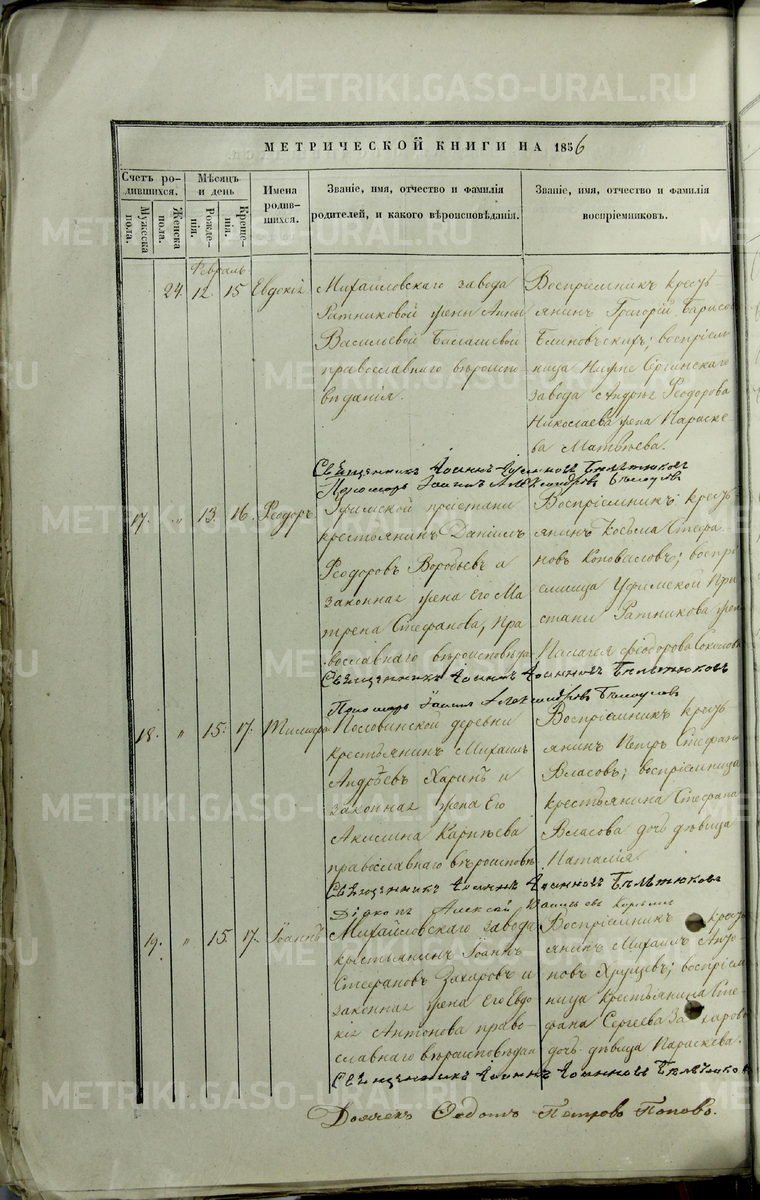 МЕТРИЧЕСКОЙ КНИГИ НА 1856
Счетъ ро-
дившихся.
Мужеска
пола.
Женска
пола.
Мѣсяцъ
и день
Рожде-
нія.
Креще-
нія.
Имена
родив-
шихся.
Званіе, имя, отчество и фамилія
родителей, и какого вѣроисповѣданія.
Званіе, имя, отчество и фамилія
воспріемниковъ.
Февраль
24. 12. 15 Евдокія
Михайловскаго завода
Ратниковой жены Анны
Василіевой
православнаго вѣроиспо-
вѣданія.
Воспріемникъ кресть-
янинъ Григорій Барисовъ
воспріем-
ница Нижне Сергинскаго
завода Андрея Ѳеодорова
Николаева жена Параске-
ва Матвѣева.
Священникъ Іоаннъ Іоанновъ
Пономарь
17. " 13. 16. Ѳеодоръ
Уфимской пристани
крестьянинъ Даніилъ
Ѳеодоровъ Воробьевъ и
законная жена Его Ма-
трена Стефанова, пра-
вославнаго вѣроисповѣда
Воспріемникъ кресть-
янинъ Косьма Стефа-
новъ Коноваловъ; воспрі-
емница Уфимской При-
стани Ратникова жена
Палагея Ѳеодорова
Священникъ Іоаннъ Іоанновъ
Пономарь
18. " 15. 17.
Половинской деревни
крестьянинъ Михаилъ
Андрѣевъ Харинъ и
законная жена Его
Акилина Карпѣева
православнаго вѣроисповѣ
Воспріемникъ кресть-
янинъ Петръ Стефано
Власовъ; воспріемница
крестьянина Стефана
Власова дочь дѣвица
Наталія
Священникъ Іоаннъ Іоанновъ
Діаконъ Алексѣй
19. " 15. 17. Іоаннъ
Михайловскаго завода
крестьянинъ Іоаннъ
Стефановъ Захаровъ и
законная жена Его Евдо-
кія Антонова право-
славнаго вѣроисповѣдан
Воспріемникъ кресть-
янинъ Михаилъ Анто-
новъ воспріем-
ница крестьянина Сте-
фана Сергеева Захарова
дочь дѣвица Параскева.
Священникъ Іоаннъ Іоанновъ
Дьячекъ Ѳедотъ Петровъ Поповъ.
METRIKI.GASO-URAL.RU